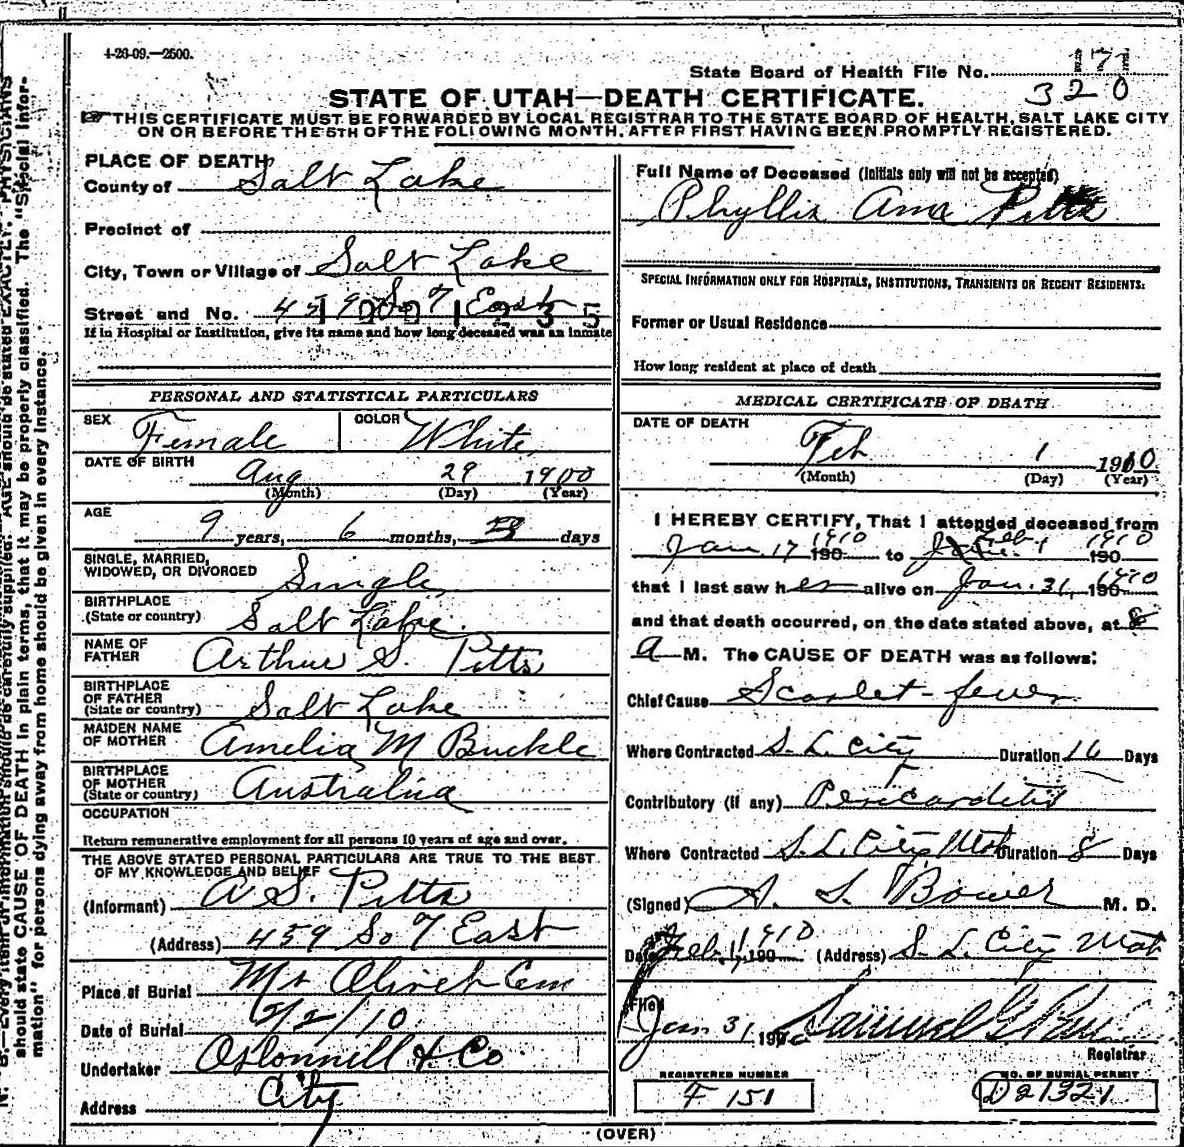 4-26-09.—2500.
State Board of Health File No. 171
320
STATE OF UTAH—DEATH CERTIFICATE.
THIS CERTIFICATE MUST BE FORWARDED BY LOCAL REGISTRAR TO THE STATE BOARD OF HEALTH, SALT LAKE CITY
ON OR BEFORE THE 5TH OF THE FOLLOWING MONTH, AFTER FIRST HAVING BEEN PROMPTLY REGISTERED.
PLACE OF DEATH
County of Salt Lake
Precinct of
City, Town or Village of Salt Lake
Street and No. 459 So 7 East
If in Hospital or Institution, give its name and how long deceased was an inmate
PERSONAL AND STATISTICAL PARTICULARS
SEX Female COLOR White
DATE OF BIRTH Aug 29 1900
(Month) (Day) (Year)
AGE
9 years, 6 months, days
SINGLE, MARRIED,
WIDOWED, OR DIVORCED Single
BIRTHPLACE
(State or country) Salt Lake.
NAME OF
FATHER Arthur S. Pitts
BIRTHPLACE
OF FATHER
(State or country) Salt Lake
MAIDEN NAME
OF MOTHER Amelia M Buckle
BIRTHPLACE
OF MOTHER
(State or country) Australia
OCCUPATION
Return remunerative employment for all persons 10 years of age and over.
THE ABOVE STATED PERSONAL PARTICULARS ARE TRUE TO THE BEST
OF MY KNOWLEDGE AND BELIEF
(Informant) A. S. Pitts
(Address) 459 So 7 East
Place of Burial Mt Olivet Cem
Date of Burial 2/2/10
Undertaker O'Donnell & Co
Address City
Full Name of Deceased (Initials only will not be accepted)
Phyllis Ama Pitts
SPECIAL INFORMATION ONLY FOR HOSPITALS, INSTITUTIONS, TRANSIENTS OR RECENT RESIDENTS:
Former or Usual Residence
How long resident at place of death
MEDICAL CERTIFICATE OF DEATH
DATE OF DEATH
Feb 1 1910
(Month) (Day) (Year)
I HEREBY CERTIFY, That I attended deceased from
Jan. 17 1910 190 to Feb. 1 1910 190
that I last saw her alive on Jan. 31, 1910 190
and that death occurred, on the date stated above, at 8
A M. The CAUSE OF DEATH was as follows:
Chief Cause Scarlet-fever
Where Contracted S. L. City Duration 16 Days
Contributory (if any) Pericarditis
Where Contracted S. L. City Utah Duration 8 Days
(Signed) A. S. Bower M. D.
Date Feb. 1, 1910 190 (Address) S. L. City Utah
Filed
Jan 31 190 Samuel G.
Registrar
REGISTERED NUMBER
F 151
NO. OF BURIAL PERMIT
D 21321
(OVER)
N. B.—Every item of information should be carefully supplied. AGE should be stated EXACTLY. PHYSICIANS
should state CAUSE OF DEATH in plain terms, that it may be properly classified. The "Special Infor-
mation" for persons dying away from home should be given in every instance.